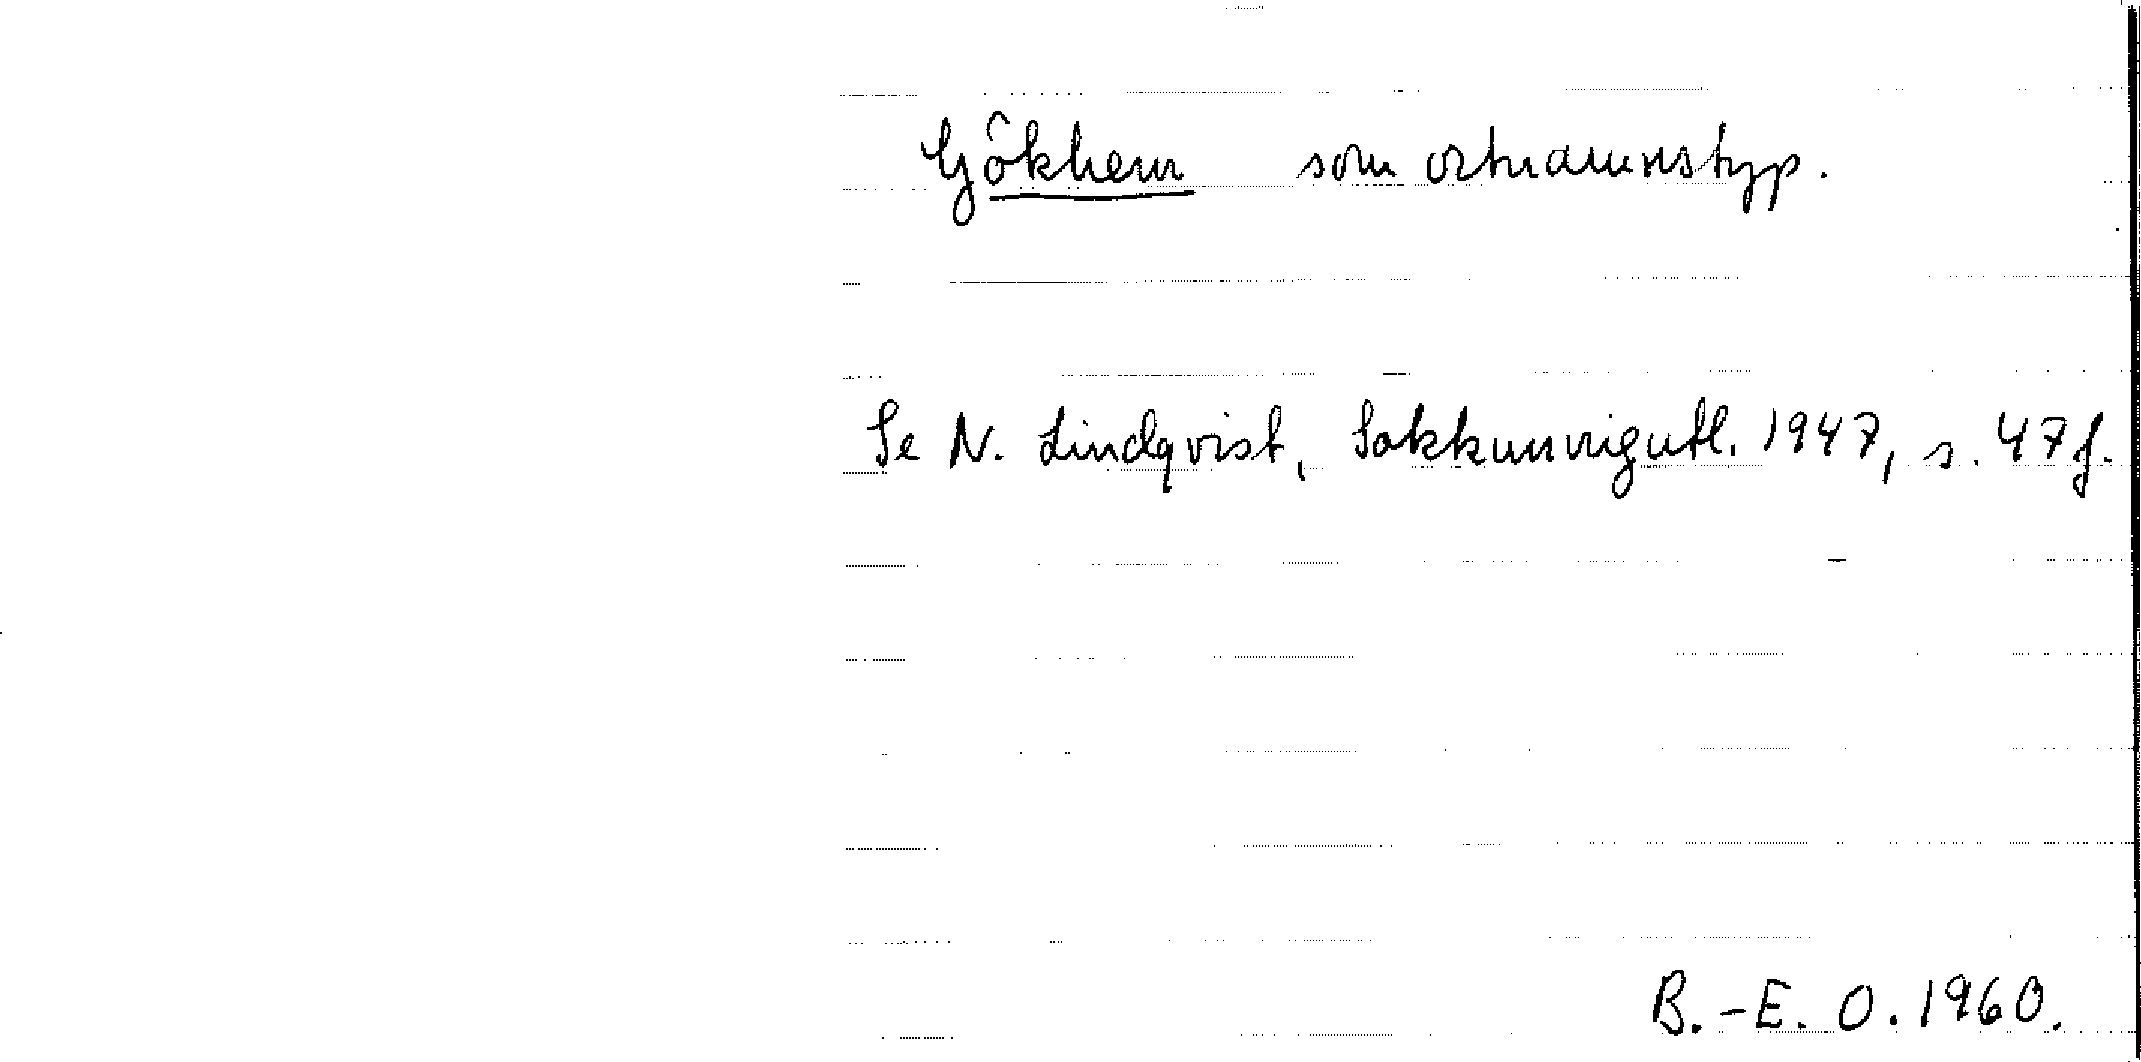 Gökhem som ortnamnstyp.
Se N. Lindqvist, Sakkunnigutl. 1947, s. 47 f.
B.-E. O. 1960.